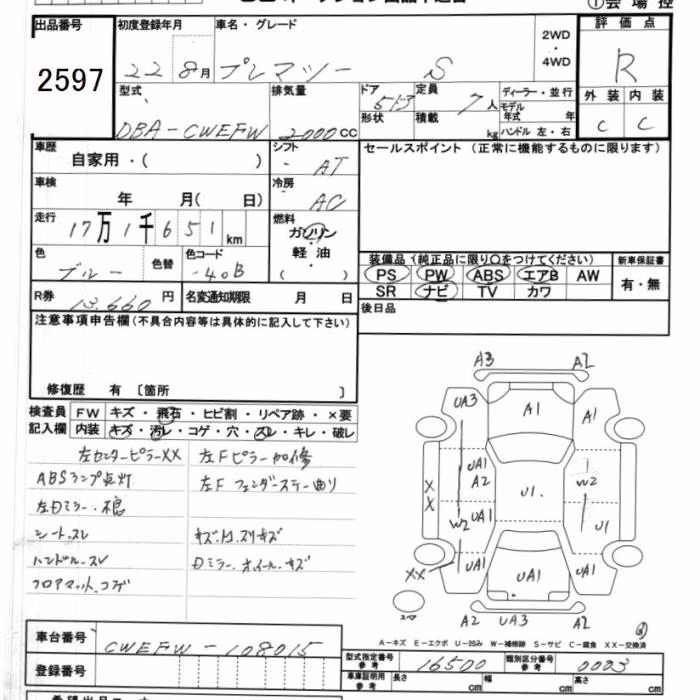 ①会場控
出品番号 初度登録年月 車名・グレード 2WD ・ 4WD 評価点
2597 22 8月 プレマシー S R
型式 排気量 ドア 定員 ディーラー・並行 外装 内装
5ドア 7人 モデル年式 年
DBA-CWEFW 2000CC 形状 積載 kg ハンドル 左・右 C C
車歴 シフト セールスポイント(正常に機能するものに限ります)
自家用・( ) AT
車検 冷房
年 月( 日) AC
走行 燃料
17万1千651km ガソリン
色 色替 色コード 軽油 装備品(純正品に限り○をつけてください) 新車保証書
ブルー -40B ( ) PS PW ABS エアB AW 有・無
SR ナビ TV カワ
R券 13,660円 名変通知期限 月 日 後日品
注意事項申告欄(不具合内容等は具体的に記入して下さい)
修復歴 有 〔箇所 〕
検査員 FW キズ・飛石・ヒビ割・リペア跡・×要
記入欄 内装 キズ・汚レ・コゲ・穴・スレ・キレ・破レ
左センターピラーXX 左Fピラー加修
ABSランプ点灯 左Fフェンダーステー曲り
左Dミラー不良
シートスレ
ハンドルスレ Dミラー、ホイールキズ
フロアマットコゲ
A3 A2
UA3 A1 A1
UA1
A2 U1. W2
XX W2 UA1 U1
XX UA1 UA1 UA1
スペア A2 UA3 A2
A-キズ E-エクボ U-凹み W-補修跡 S-サビ C-腐食 XX-交換済
車台番号 CWEFW-108015
型式指定番号 参考 16500 類別区分番号 参考 0003
登録番号 車庫証明用 参考 長さ cm 幅 cm 高さ cm